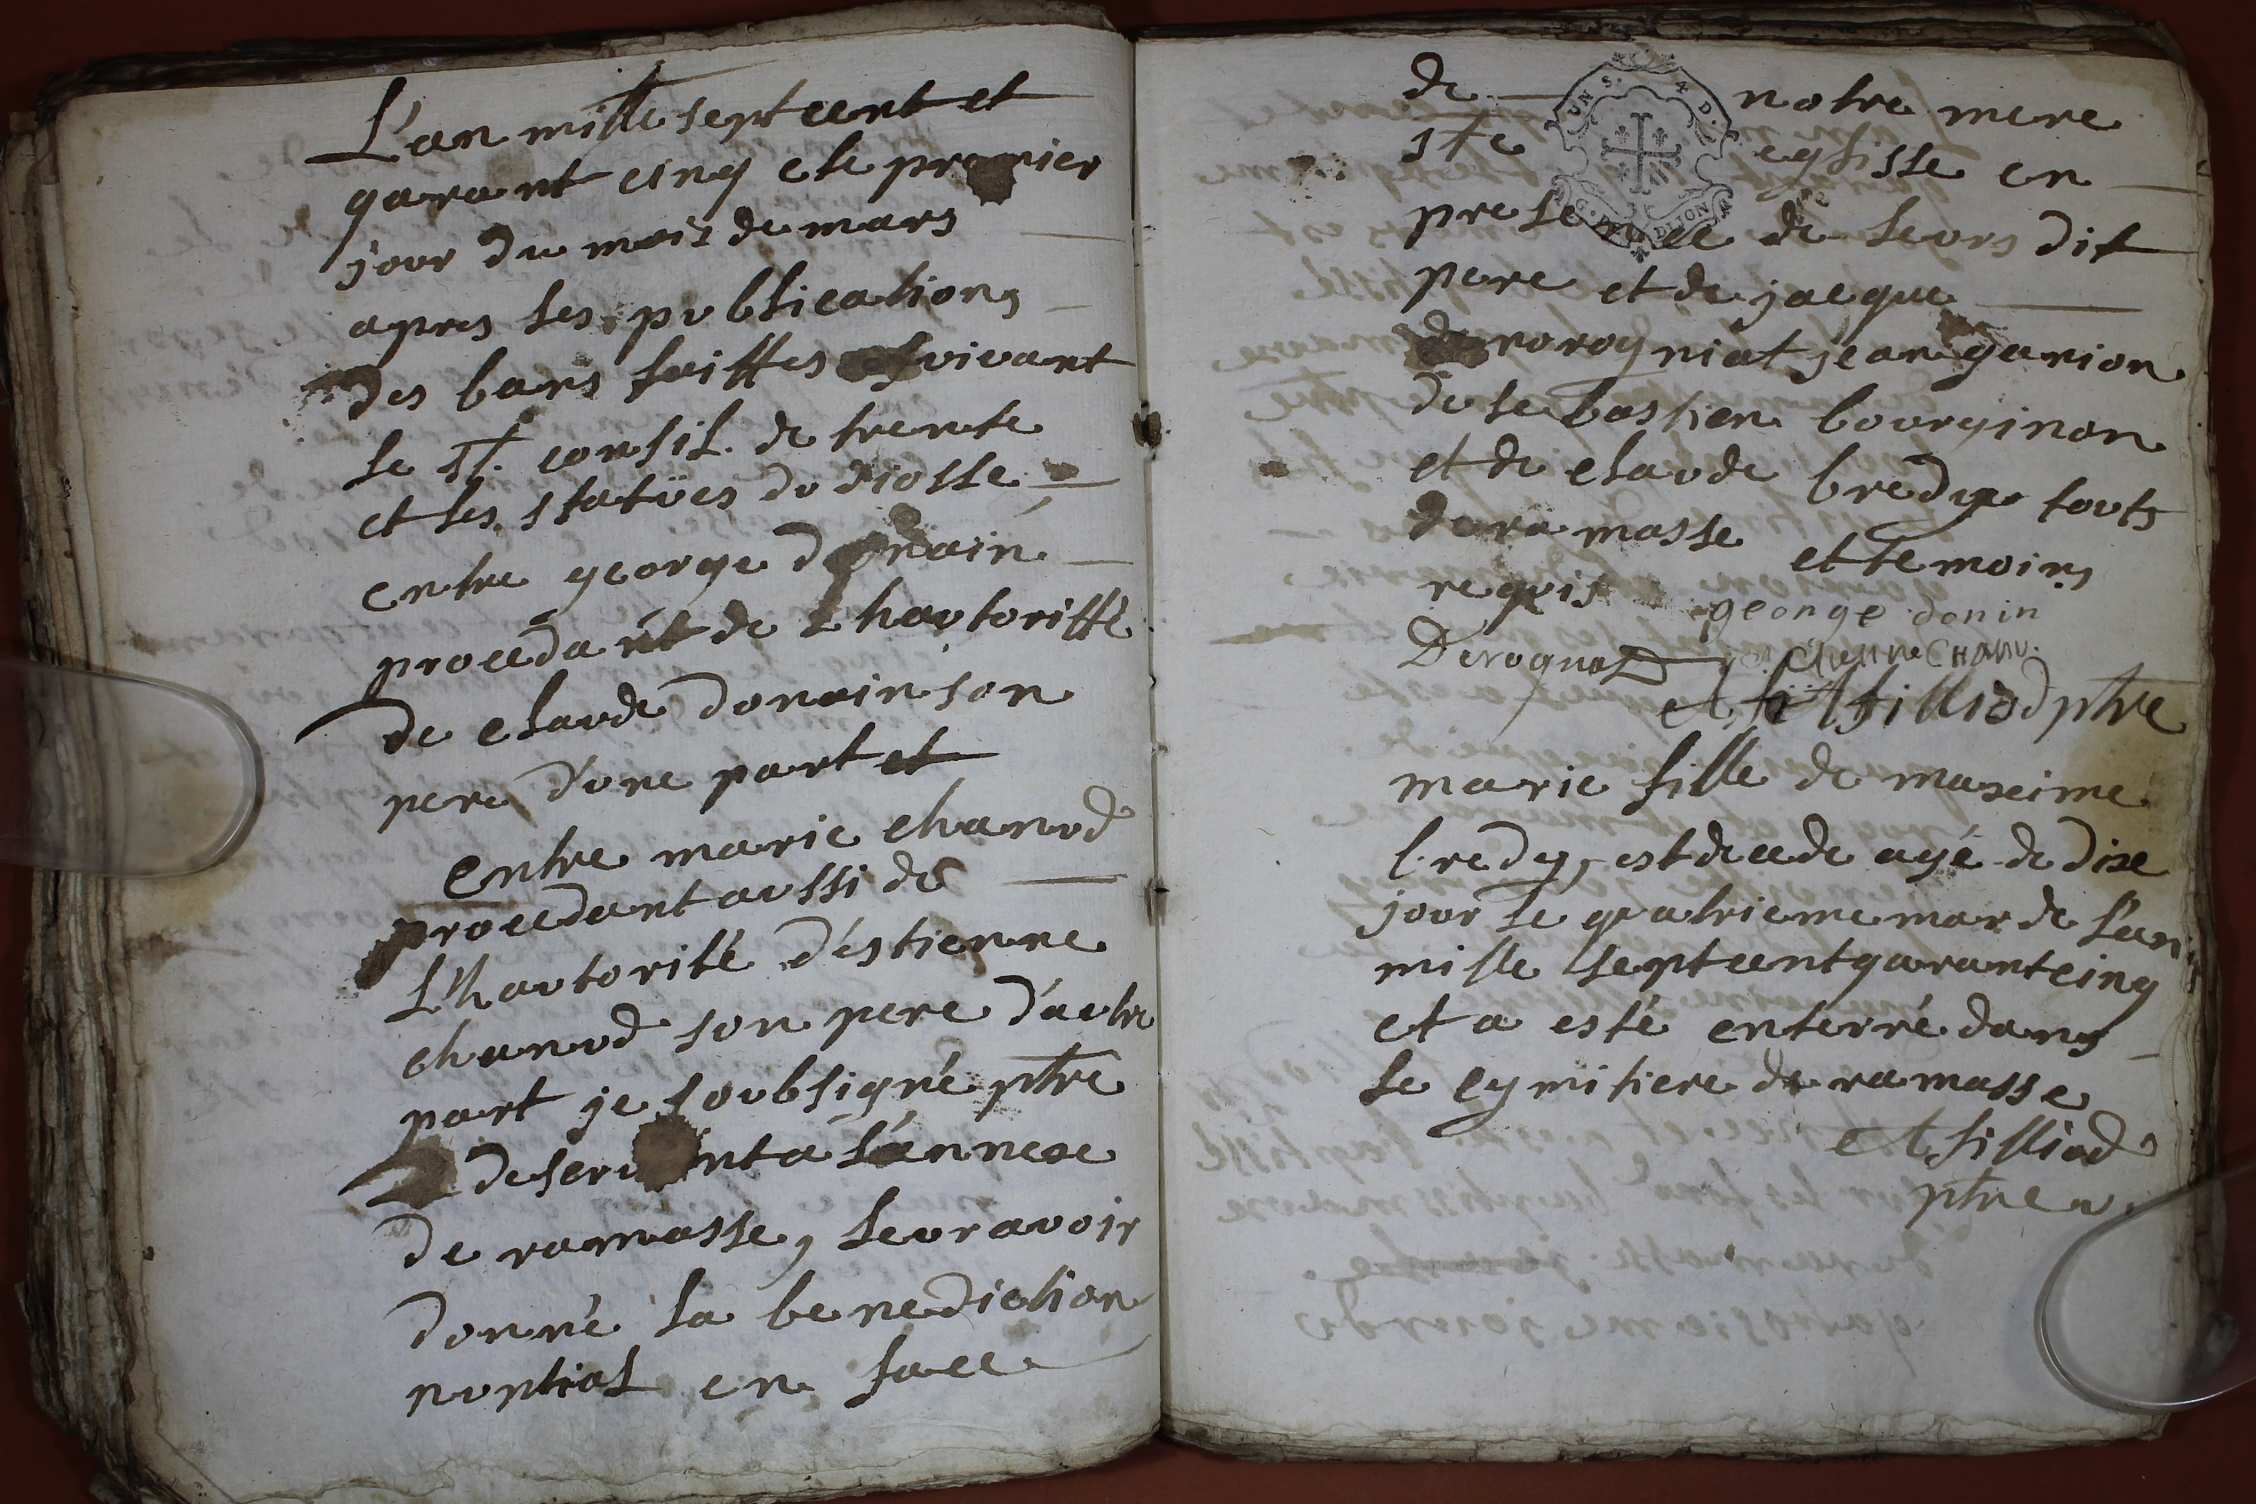 L'an mille septcent et
garant cinq e le premier
jour du mois de mars
apres les publications
des bans faittes suivant
le St. consil. de trente
et les statües du diosse
entre george donain
procedant de lhautoritté
de claude donain son
pere d'une part et
entre marie chanud
procedant aussi de
L'hautorité d'éstienne
chanud son pere d'autre
part je soubsigné ptre
deservent a l'annexe
de ramasse, leur avoir
donné la benediction
nuptial en face
de notre mere
Ste eglisse en
presence de leurs dit
pere et de jacque
derorogniat jean garion
de sebastien bourginon
et de claude bredy touts
de ramasse et temoins
requis
george donin
Derognat Etienne CHANU
filliod ptre
marie fille de maxime
bredy, est decede agé de dix
jour le quatrieme mar de l'an
mille septcent garantcinq
et a esté enterré dans
le cymitiere de ramasse
filliod
ptre
UN S. 4 D.
G. DE DIJON